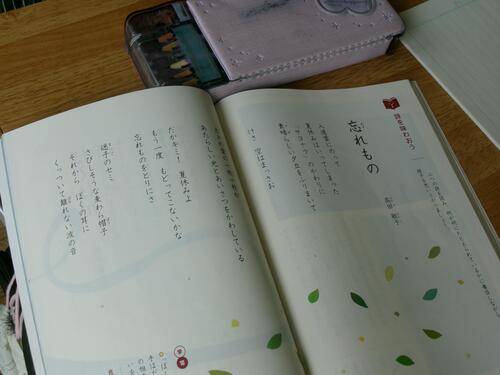 詩を味わおう
忘れもの
高田 敏子
入道雲にのって
夏休みはいってしまった
「サヨナラ」のかわりに
素晴らしい夕立をふりまいて
けさ 空はまっさお
あたらしい光とあいさつをかわしている
だがキミ! 夏休みよ
もう一度 もどってこないかな
忘れものをとりにさ
迷子のセミ
さびしそうな麦わら帽子
それから ぼくの耳に
くっついて離れない波の音